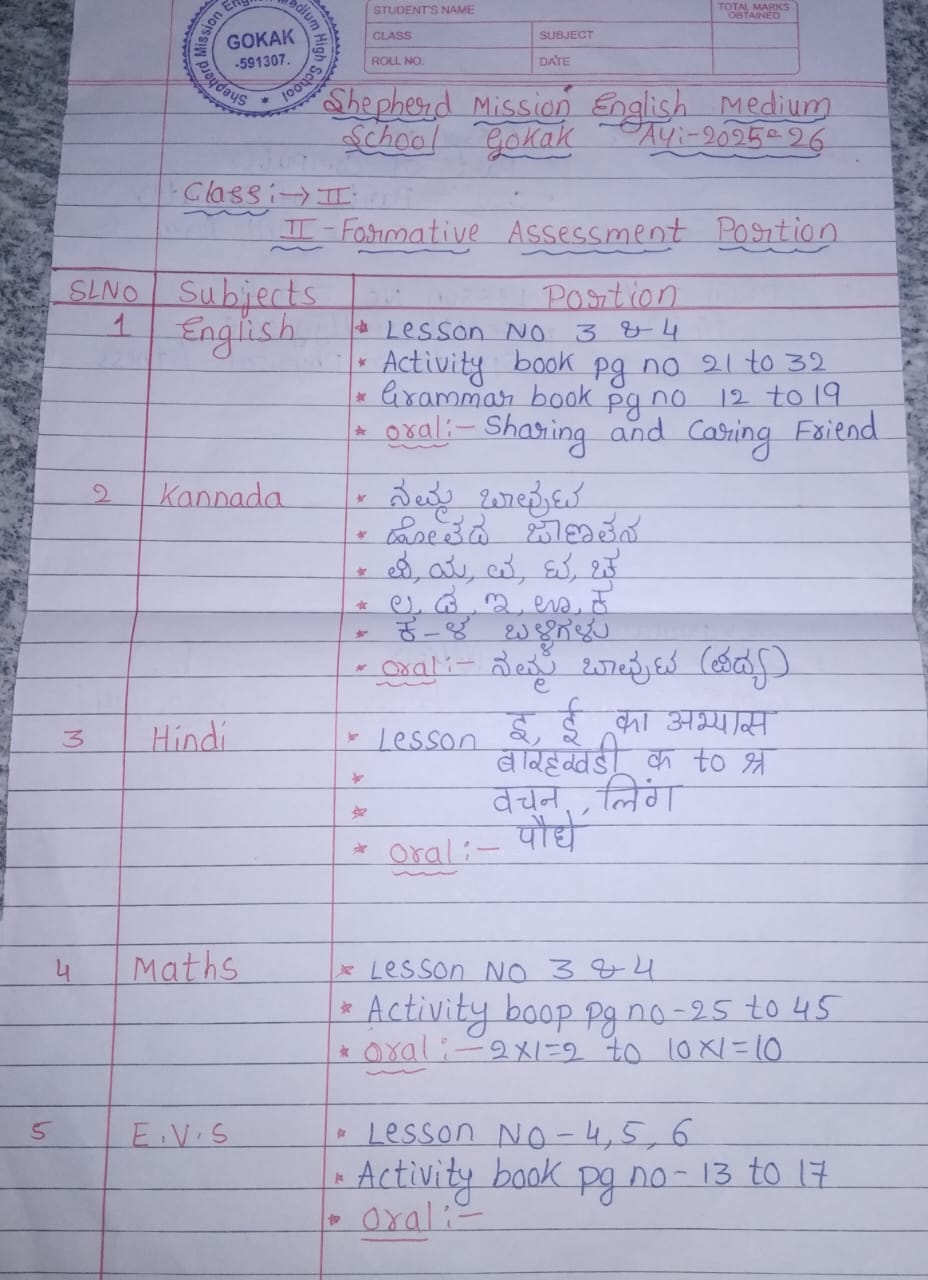 STUDENT'S NAME
TOTAL MARKS OBTAINED
CLASS
SUBJECT
ROLL NO.
DATE
Shepherd Mission English Medium High School
GOKAK
-591307.
Shepherd Mission English Medium
School Gokak AY:-2025-26
Class:→ II
II - Formative Assessment Portion
SLNO Subjects Portion
1 English * Lesson No 3 & 4
* Activity book pg no 21 to 32
* Grammar book pg no 12 to 19
* Oral:- Sharing and Caring Friend
2 Kannada * ನಮ್ಮ ಬಾವುಟ
* ಹೋತದ ಜಾಣತನ
* ಘ, ಝ
* ಲ, ಡ, ಇ, ಊ, ಕ
* ಕ-ಳ ಬಳ್ಳಿಗಳು
* Oral:- ನಮ್ಮ ಬಾವುಟ (ಪದ್ಯ)
3 Hindi * Lesson इ, ई का अभ्यास
* बारहखडी क to श्र
* वचन, लिंग
* Oral:- पौधे
4 Maths * Lesson No 3 & 4
* Activity boop pg no-25 to 45
* Oral:- 2x1=2 to 10x1=10
5 E.V.S * Lesson No-4,5,6
* Activity book pg no-13 to 17
* Oral:-